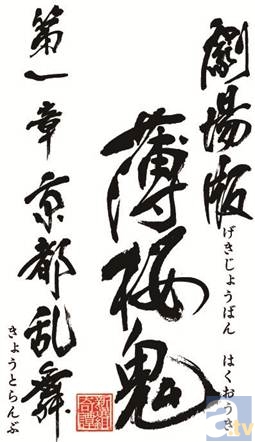 劇場版
げきじょうばん　はくおうき
薄桜鬼
新選組
奇譚
第一章 京都乱舞
きょうとらんぶ
a
tv